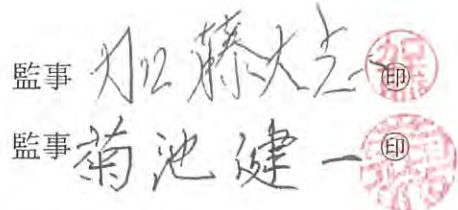 監事 加藤大 印
監事 菊池健一 印